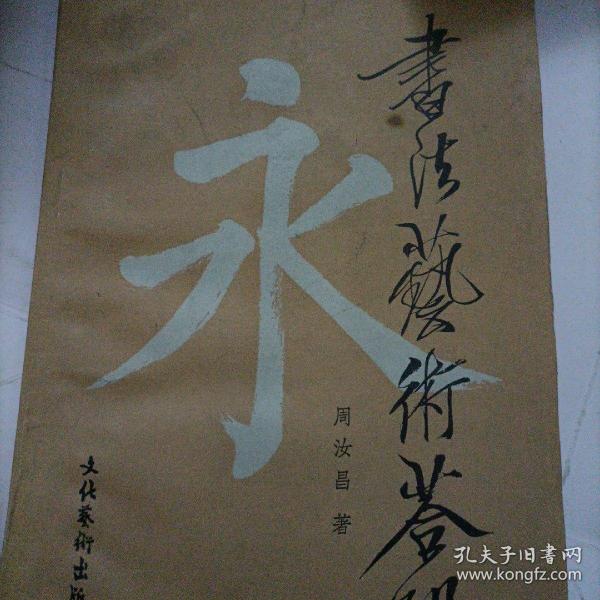 書法藝術荅
永
周汝昌 著
文化藝術出版
孔夫子旧書网
www.kongfz.com